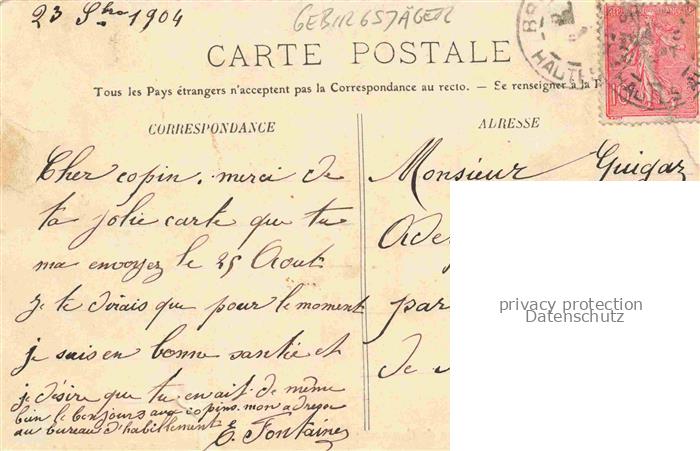 23 7bre 1904
GEBIRGSJÄGER
CARTE POSTALE
Tous les Pays étrangers n'acceptent pas la Correspondance au recto. — Se renseigner à la
CORRESPONDANCE
Cher copin. merci de
ta jolie carte que tu
ma envoyez le 25 Aout
je te dirais que pour le moment
je suis en bonne santié et
je désire que tu en ait de même
bien le bonjours aux copins. mon adresse
au bureau d'habillement
E. Fontaine
ADRESSE
Monsieur Guigaz
par
de
HAUTES
10
privacy protection
Datenschutz